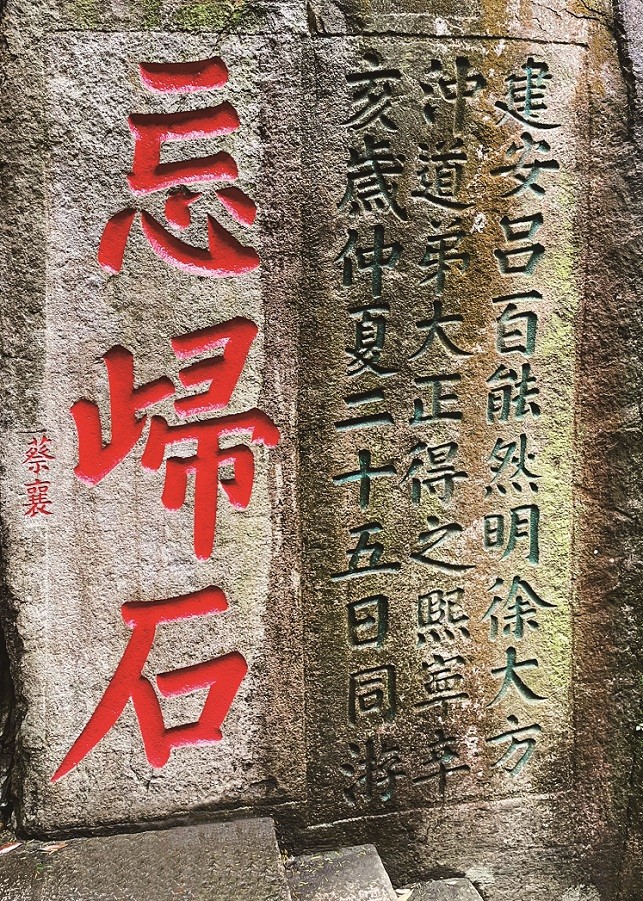 建安吕百能然明徐大方
沖道弟大正得之熙寧辛
亥歲仲夏二十五日同游
忘歸石
蔡襄